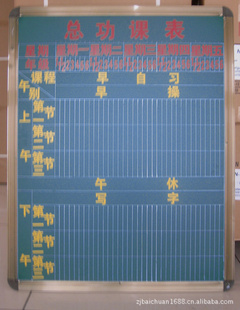 总功课表
星期 星期一 星期二 星期三 星期四 星期五
年级
课程
早自习
别
早操
上午
第一节
第二节
第三节
午休
写字
下午
第一节
第二节
第三节
zjbaichuan1688.cn.alibaba.com